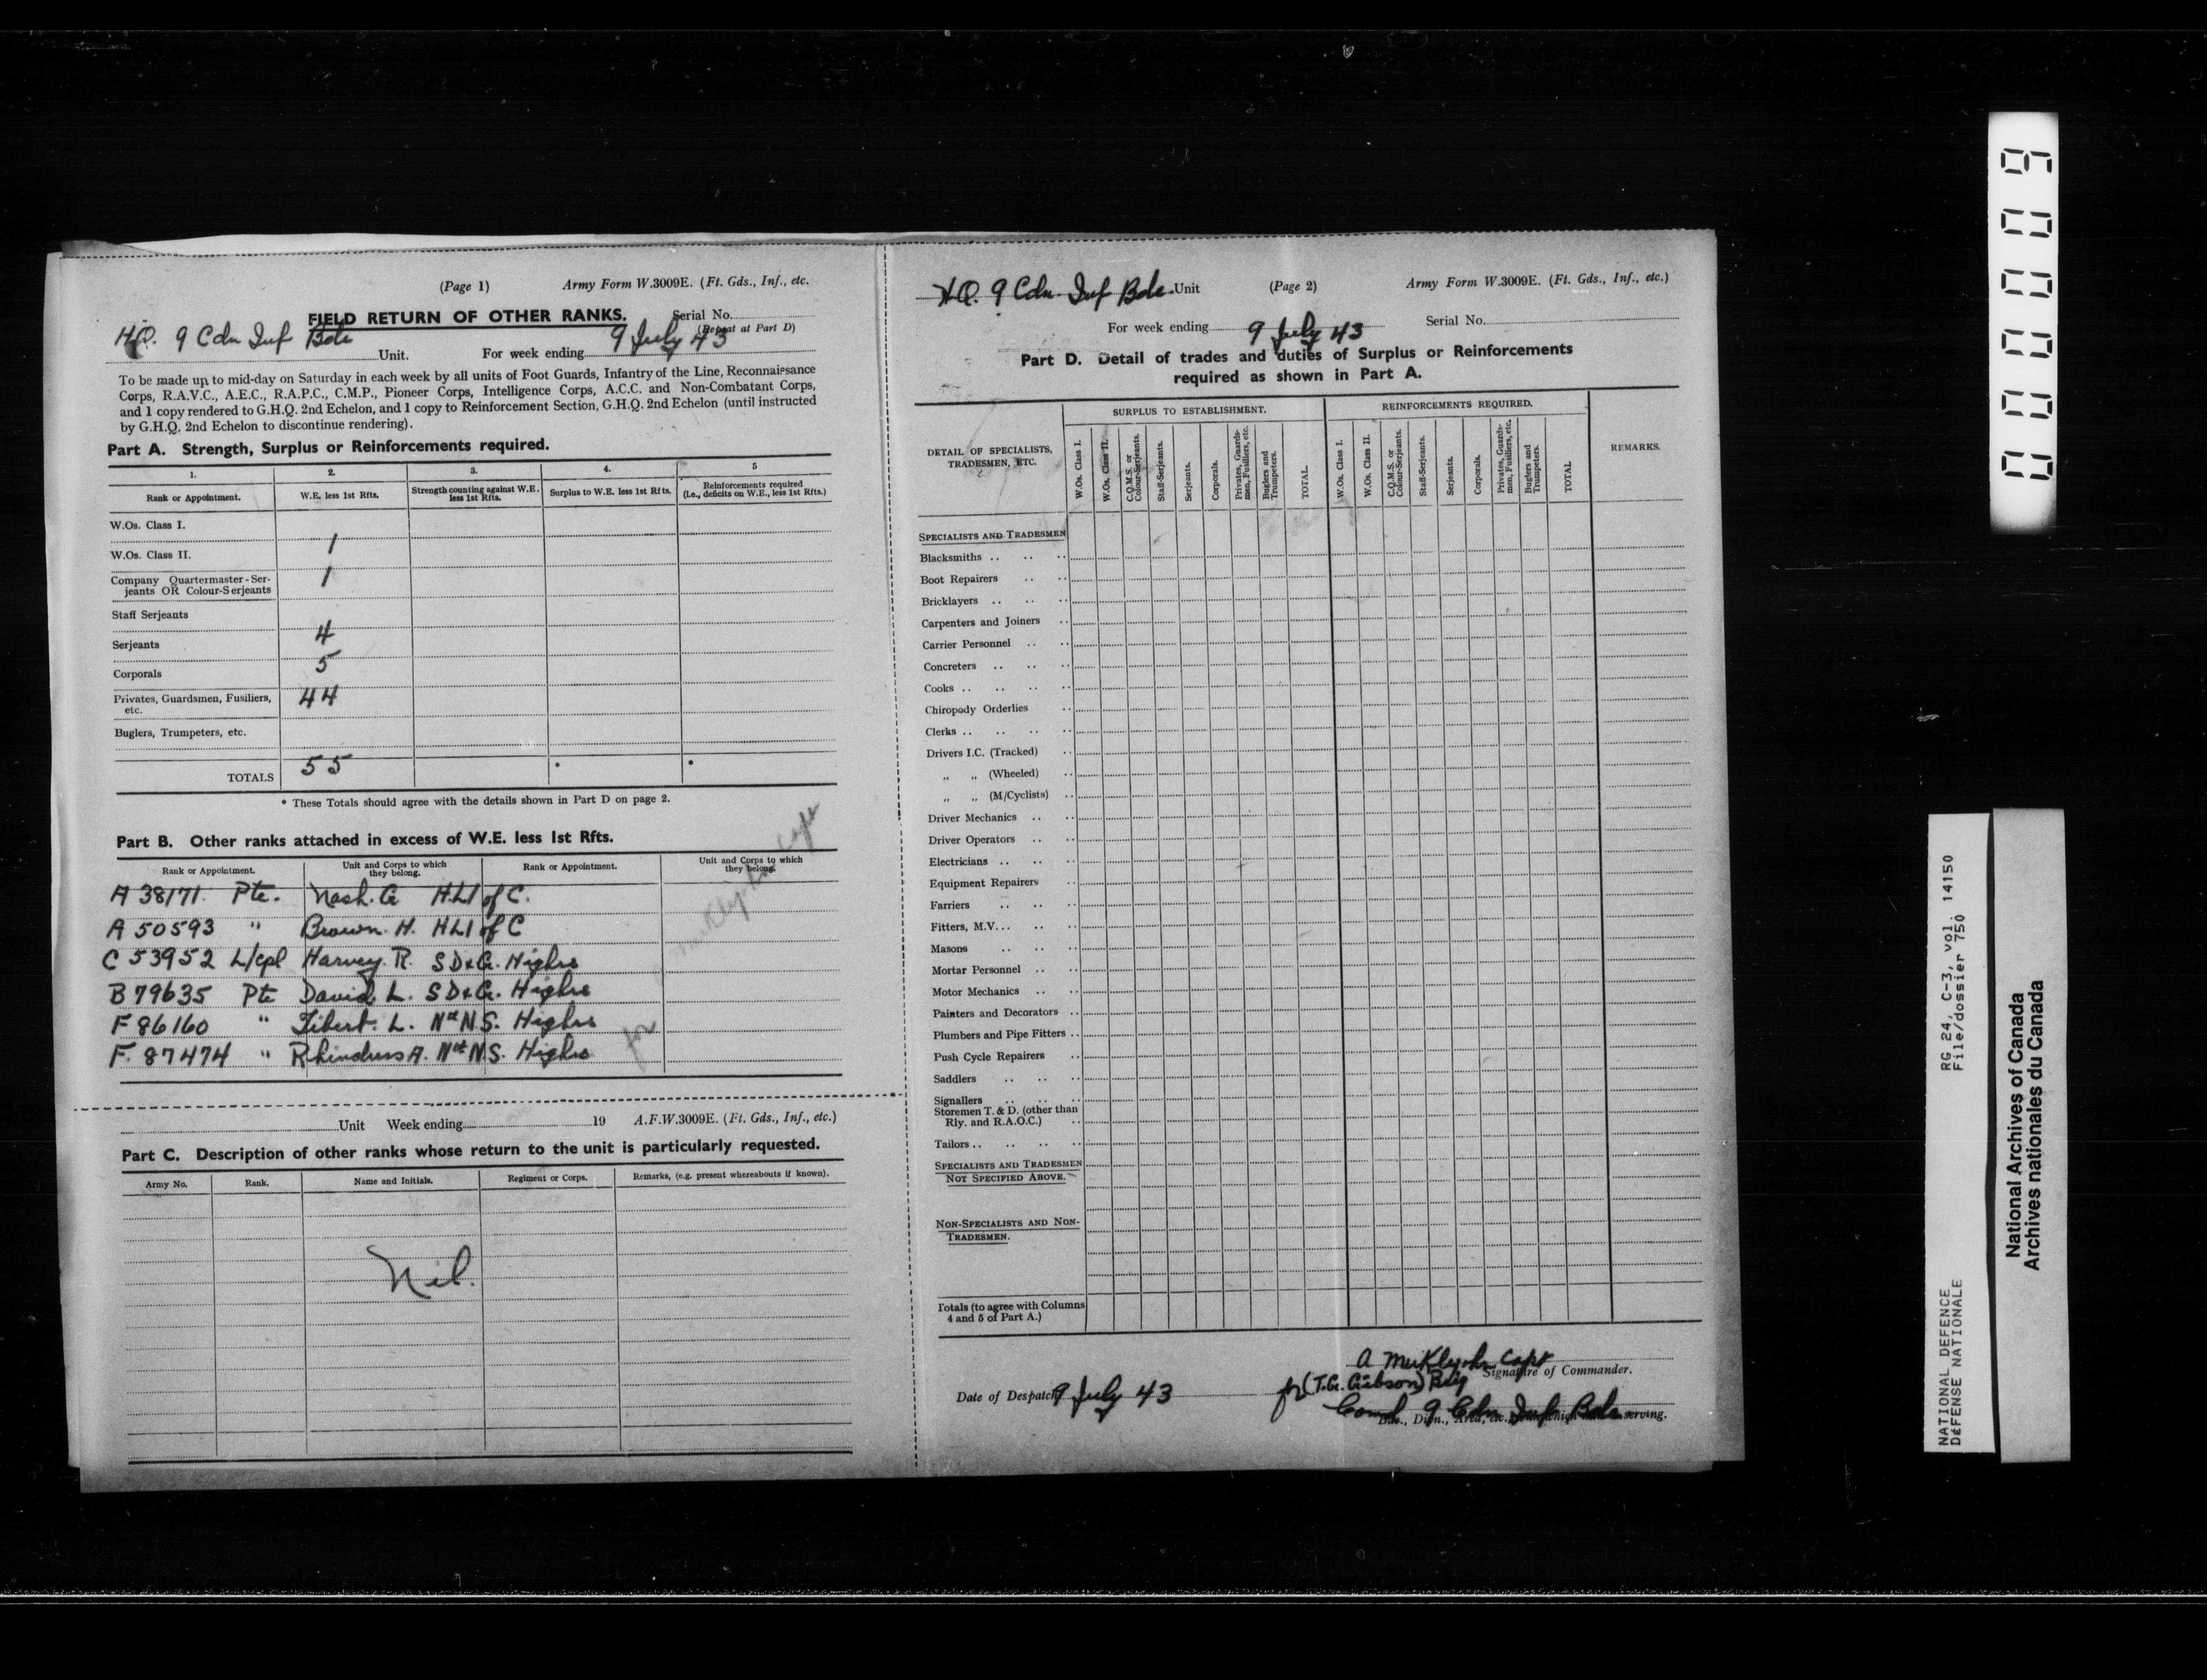 (Page 1) Army Form W.3009E. (Ft. Gds., Inf., etc.
FIELD RETURN OF OTHER RANKS. Serial No.
(Repeat at Part D)
HQ. 9 Cdn Inf Bde Unit. For week ending 9 July 43
To be made up to mid-day on Saturday in each week by all units of Foot Guards, Infantry of the Line, Reconnaissance
Corps, R.A.V.C., A.E.C., R.A.P.C., C.M.P., Pioneer Corps, Intelligence Corps, A.C.C. and Non-Combatant Corps,
and 1 copy rendered to G.H.Q. 2nd Echelon, and 1 copy to Reinforcement Section, G.H.Q. 2nd Echelon (until instructed
by G.H.Q. 2nd Echelon to discontinue rendering).
Part A. Strength, Surplus or Reinforcements required.
1. 2. 3. 4. 5
Rank or Appointment. W.E. less 1st Rfts. Strength counting against W.E. less 1st Rfts. Surplus to W.E. less 1st Rfts. Reinforcements required (i.e., deficits on W.E., less 1st Rfts.)
W.Os. Class I.
W.Os. Class II. 1
Company Quartermaster-Ser-
jeants OR Colour-Serjeants 1
Staff Serjeants
Serjeants 4
Corporals 5
Privates, Guardsmen, Fusiliers, 44
etc.
Buglers, Trumpeters, etc.
TOTALS 55 * *
* These Totals should agree with the details shown in Part D on page 2.
Part B. Other ranks attached in excess of W.E. less 1st Rfts.
Rank or Appointment. Unit and Corps to which they belong. Rank or Appointment. Unit and Corps to which they belong.
A 38171. Pte. Nash. G HLI of C.
A 50593 " Brown. H. HLI of C
C 53952 L/cpl Harvey. R. S D & G. Highrs
B 79635 Pte David. L. S D & G. Highrs
F 86160 " Tibert. L. Nth N.S. Highrs
F. 87474 " Rhindress A. Nth N.S. Highrs
Unit Week ending 19 A.F.W.3009E. (Ft. Gds., Inf., etc.)
Part C. Description of other ranks whose return to the unit is particularly requested.
Army No. Rank. Name and Initials. Regiment or Corps. Remarks, (e.g. present whereabouts if known).
Nil.
HQ. 9 Cdn. Inf Bde. Unit (Page 2) Army Form W.3009E. (Ft. Gds., Inf., etc.)
For week ending 9 July 43 Serial No.
Part D. Detail of trades and duties of Surplus or Reinforcements
required as shown in Part A.
DETAIL OF SPECIALISTS, TRADESMEN, ETC. SURPLUS TO ESTABLISHMENT. REINFORCEMENTS REQUIRED. REMARKS.
W.Os. Class I. W.Os. Class II. C.Q.M.S. or Colour-Serjeants. Staff-Serjeants. Serjeants. Corporals. Privates, Guards-men, Fusiliers, etc. Buglers and Trumpeters. TOTAL. W.Os. Class I. W.Os. Class II. C.Q.M.S. or Colour-Serjeants. Staff-Serjeants. Serjeants. Corporals. Privates, Guards-men, Fusiliers, etc. Buglers and Trumpeters. TOTAL
SPECIALISTS AND TRADESMEN
Blacksmiths
Boot Repairers
Bricklayers
Carpenters and Joiners
Carrier Personnel
Concreters
Cooks
Chiropody Orderlies
Clerks
Drivers I.C. (Tracked)
" " (Wheeled)
" " (M/Cyclists)
Driver Mechanics
Driver Operators
Electricians
Equipment Repairers
Farriers
Fitters, M.V.
Masons
Mortar Personnel
Motor Mechanics
Painters and Decorators
Plumbers and Pipe Fitters
Push Cycle Repairers
Saddlers
Signallers
Storemen T. & D. (other than
Rly. and R.A.O.C.)
Tailors
SPECIALISTS AND TRADESMEN
NOT SPECIFIED ABOVE.
NON-SPECIALISTS AND NON-
TRADESMEN.
Totals (to agree with Columns
4 and 5 of Part A.)
A Capt
Signature of Commander.
Date of Despatch 9 July 43 for (T.G. Gibson) Brig
Comd 9 Cdn Inf Bde
Bde., Divn., Area, etc. serving.
00009
RG 24, C-3, vol. 14150
File/dossier 750
NATIONAL DEFENCE
DÉFENSE NATIONALE
National Archives of Canada
Archives nationales du Canada